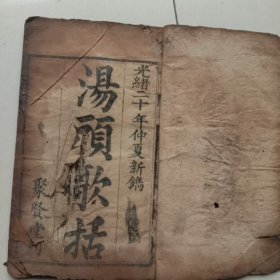 光緒二十年仲夏新鐫
湯頭歌括
聚賢堂